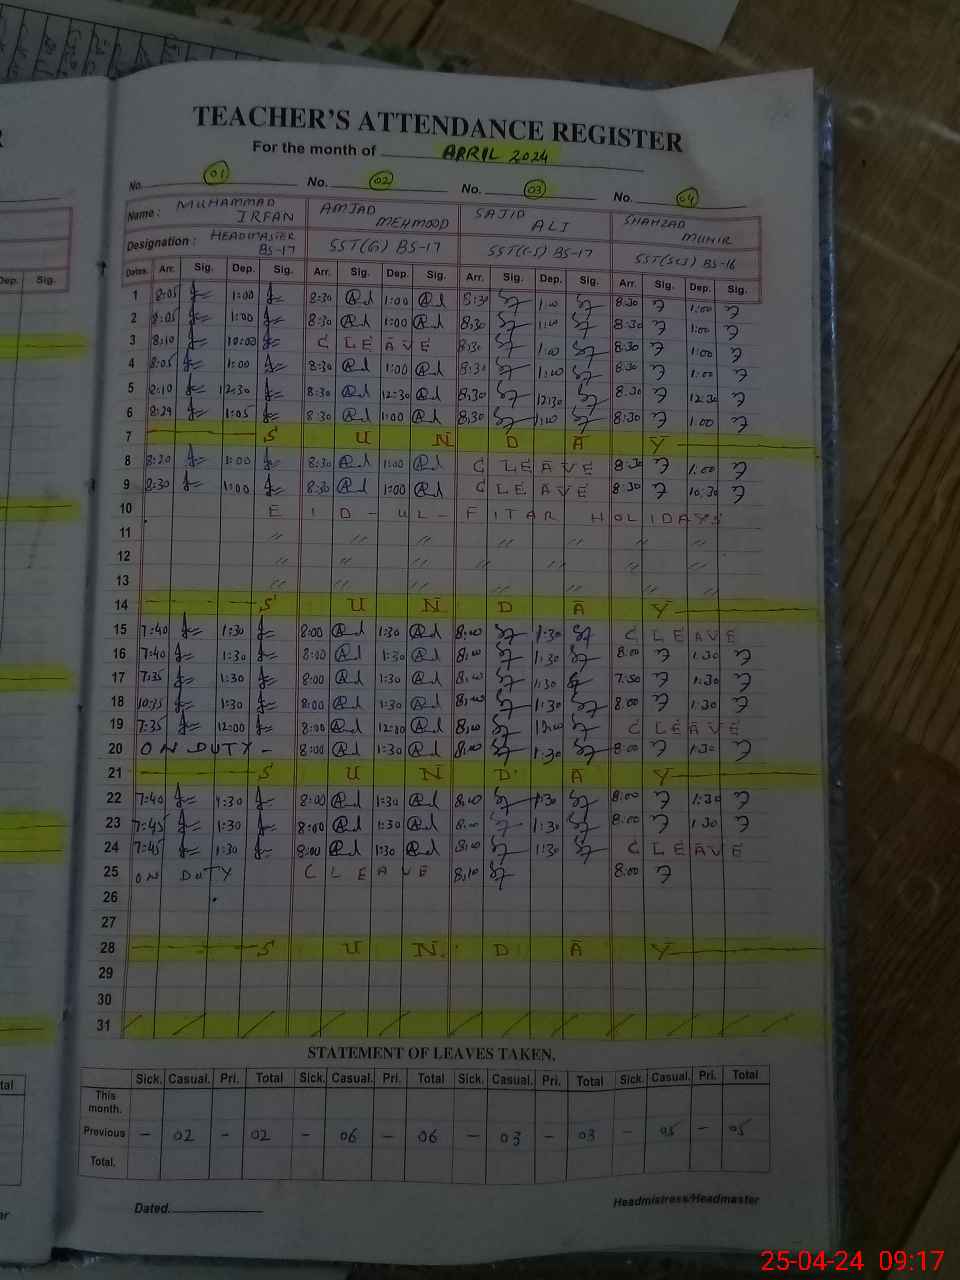 TEACHER'S ATTENDANCE REGISTER
For the month of APRIL 2024
No. 01 No. 02 No. 03 No. 04
Name : MUHAMMAD IRFAN AMJAD MEHMOOD SAJID ALI SHAHZAD MUNIR
Designation : HEADMASTER BS-17 SST(G) BS-17 SST(CS) BS-17 SST(Sci) BS-16
Dates. Arr. Sig. Dep. Sig. Arr. Sig. Dep. Sig. Arr. Sig. Dep. Sig. Arr. Sig. Dep. Sig.
1 8:05 1:00 8:30 1:00 8:30 1:00 8:30 1:00
2 8:05 1:00 8:30 1:00 8:30 1:00 8:30 1:00
3 8:10 10:00 C LEAVE 8:30 1:00 8:30 1:00
4 8:05 1:00 8:30 1:00 8:30 1:00 8:30 1:00
5 8:10 12:30 8:30 12:30 8:30 12:30 8:30 12:30
6 8:29 1:05 8:30 1:00 8:30 1:00 8:30 1:00
7 S U N D A Y
8 8:20 1:00 8:30 1:00 C LEAVE 8:30 1:00
9 8:30 1:00 8:30 1:00 C LEAVE 8:30 10:30
10 EID-UL-FITAR HOLIDAYS
11 〃 〃 〃 〃 〃 〃 〃
12 〃 〃 〃 〃 〃 〃
13 〃 〃 〃 〃 〃 〃 〃
14 S U N D A Y
15 7:40 1:30 8:00 1:30 8:00 1:30 C LEAVE
16 7:40 1:30 8:00 1:30 8:00 1:30 8:00 1:30
17 7:35 1:30 8:00 1:30 8:00 1:30 7:50 1:30
18 10:35 1:30 8:00 1:30 8:00 1:30 8:00 1:30
19 7:35 12:00 8:00 12:00 8:00 12:00 C LEAVE
20 ON DUTY - 8:00 1:30 8:00 1:30 8:00 1:30
21 S U N D A Y
22 7:40 1:30 8:00 1:30 8:00 1:30 8:00 1:30
23 7:45 1:30 8:00 1:30 8:00 1:30 8:00 1:30
24 7:45 1:30 8:00 1:30 8:00 1:30 C LEAVE
25 ON DUTY C LEAVE 8:10 8:00
26
27
28 S U N D A Y
29
30
31
STATEMENT OF LEAVES TAKEN.
Sick. Casual. Pri. Total Sick. Casual. Pri. Total Sick. Casual. Pri. Total Sick. Casual. Pri. Total
This month.
Previous - 02 - 02 - 06 - 06 - 03 - 03 - 05 - 05
Total.
Dated. Headmistress/Headmaster
Dep. Sig.
25-04-24 09:17